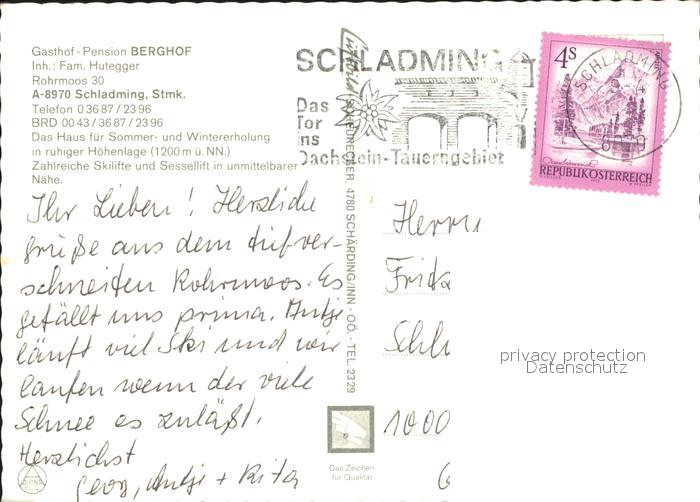 Gasthof - Pension BERGHOF
Inh.: Fam. Hutegger
Rohrmoos 30
A-8970 Schladming, Stmk.
Telefon 0 36 87 / 23 96
BRD 00 43 / 36 87 / 23 96
Das Haus für Sommer- und Wintererholung
in ruhiger Höhenlage (1200 m ü. NN.)
Zahlreiche Skilifte und Sessellift in unmittelbarer
Nähe.
SCHLADMING
Das
Tor
ins
Dachstein-Tauerngebiet
4S
REPUBLIK ÖSTERREICH
SCHLADMING
Ihr Lieben! Herzliche
grüße aus dem tiefver-
schneiten Rohrmoos. Es
gefällt uns prima. Antje
läuft viel Ski und wir
laufen wenn der viele
Schnee es zuläßt.
Herzlichst
Georg, Antje + Rita
4780 SCHÄRDING/INN - OÖ. - TEL. 23 29
Herrn
Fritz
1000
privacy protection
Datenschutz
Das Zeichen
für Qualität